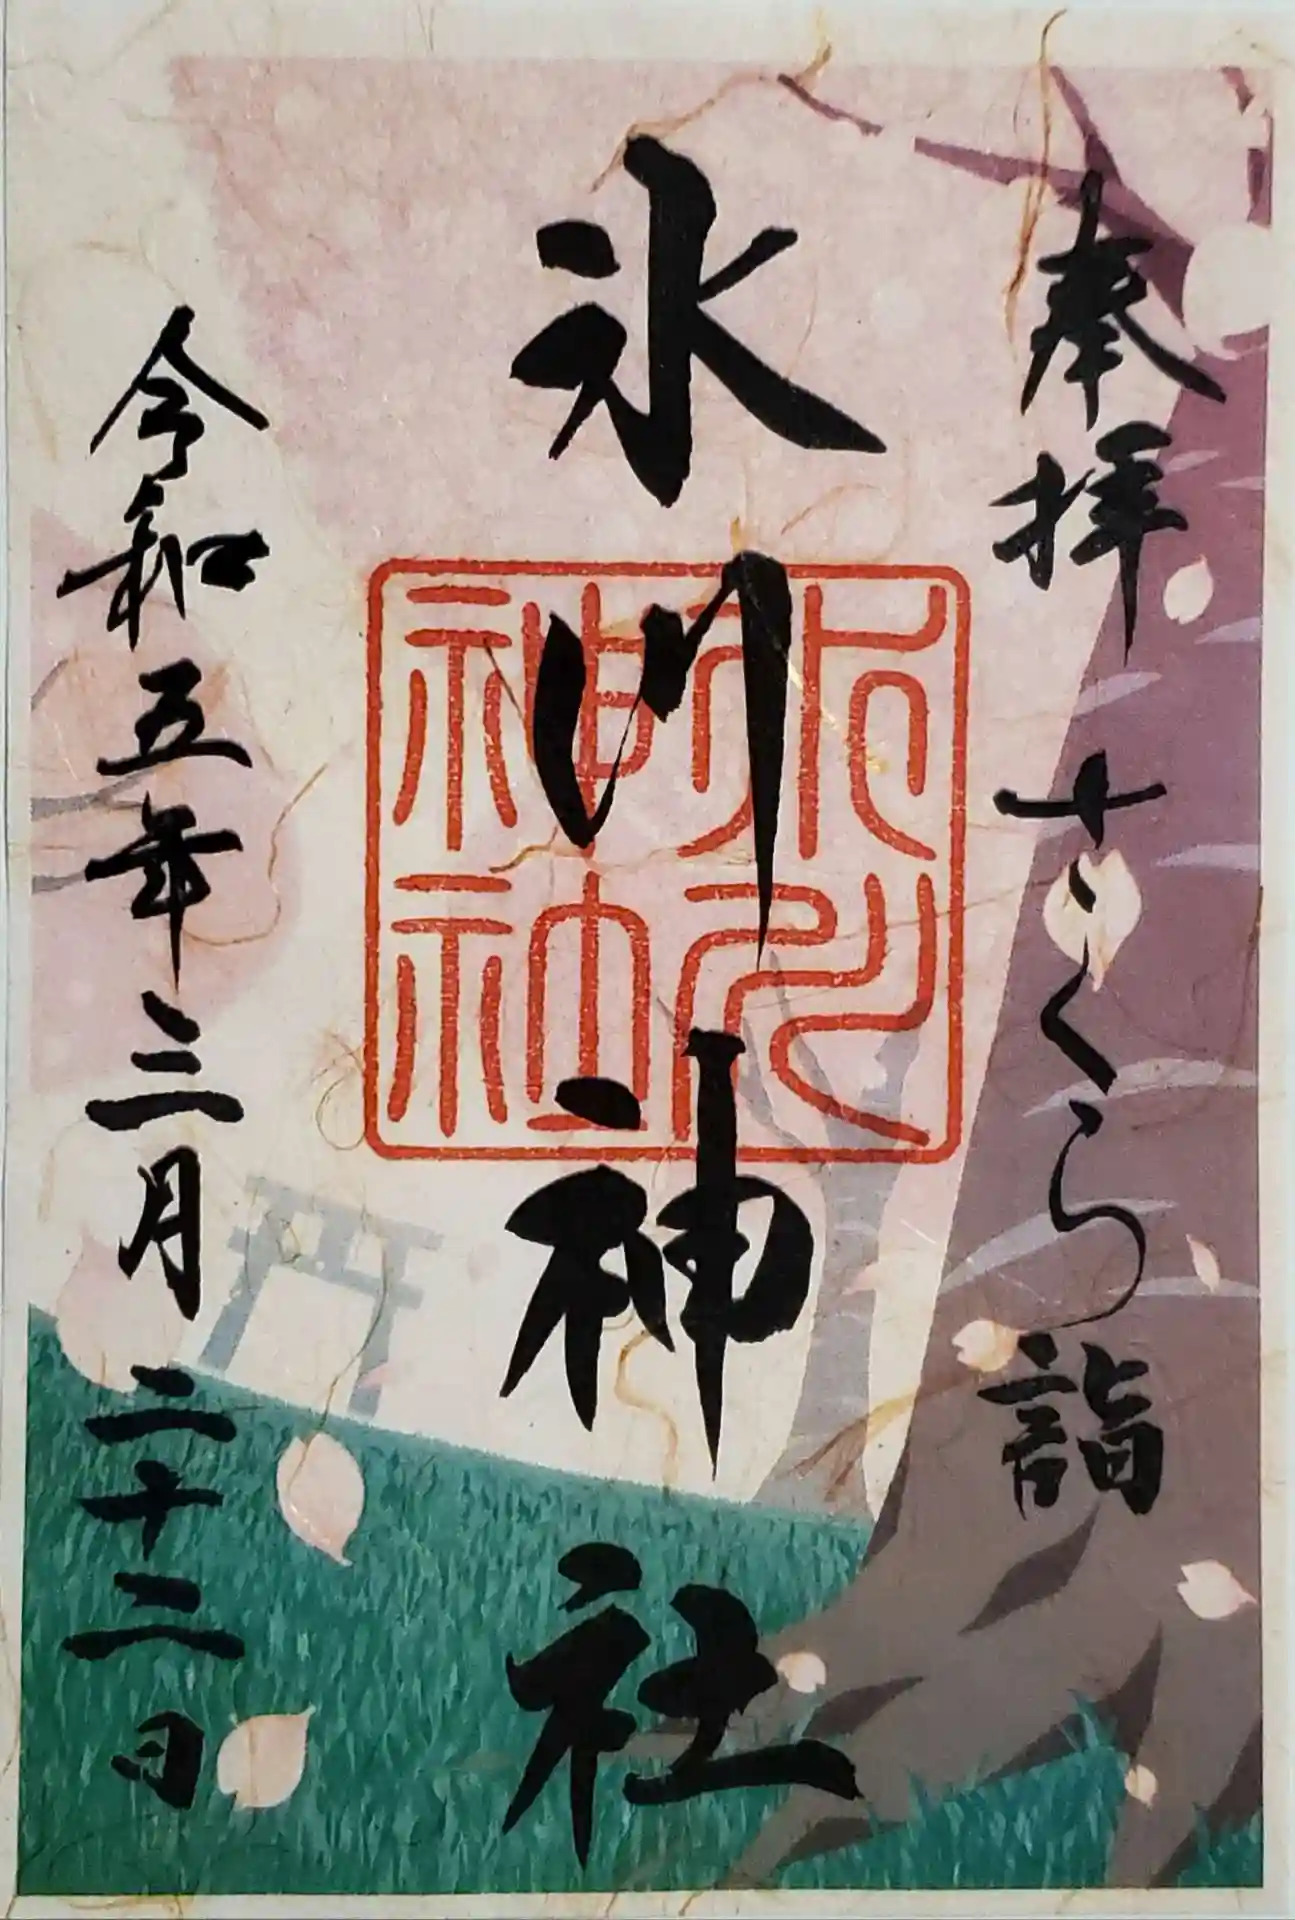 奉拝 さくら詣
氷川神社
氷川
神社
令和五年三月二十二日